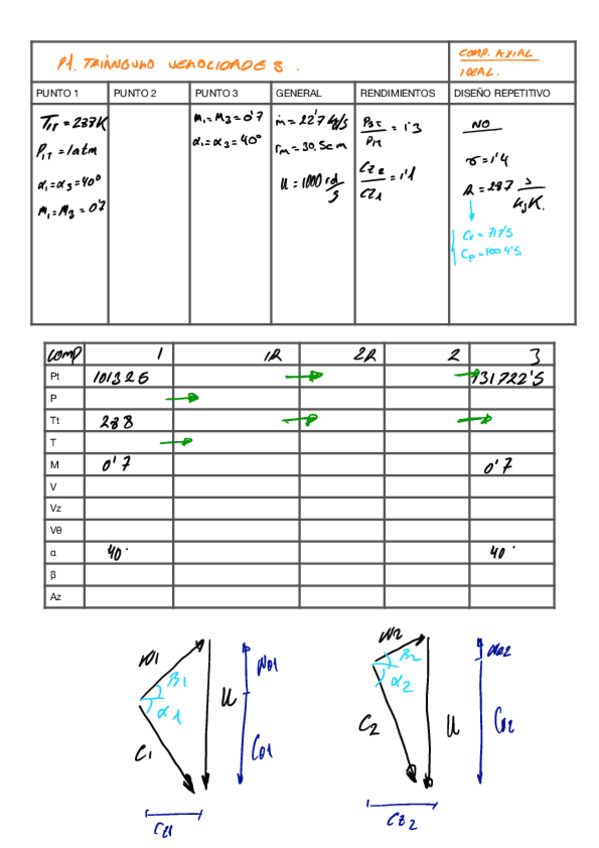 P1. TRIÁNGULO VELOCIDADES.
COMP. AXIAL
IDEAL.
PUNTO 1 PUNTO 2 PUNTO 3 GENERAL RENDIMIENTOS DISEÑO REPETITIVO
T1T = 287K
P1T = 1atm
α1 = α3 = 40º
M1 = M3 = 0'7
M1 = M3 = 0'7
α1 = α3 = 40º
ṁ = 22'7 kg/s
rm = 30,5cm
U = 1000 rd/s
P3T/P1T = 1'3
Cz2/Cz1 = 1'1
NO
γ = 1'4
R = 287 J/kgK.
Cv = 717'5
Cp = 1004'5
COMP 1 1R 2R 2 3
Pt 101325 131722'5
P
Tt 288
T
M 0'7 0'7
V
Vz
Vθ
α 40º 40º
β
Az
W1 β1 α1 C1 U Wθ1 Cθ1 Cz1
W2 β2 α2 C2 U Wθ2 Cθ2 Cz2